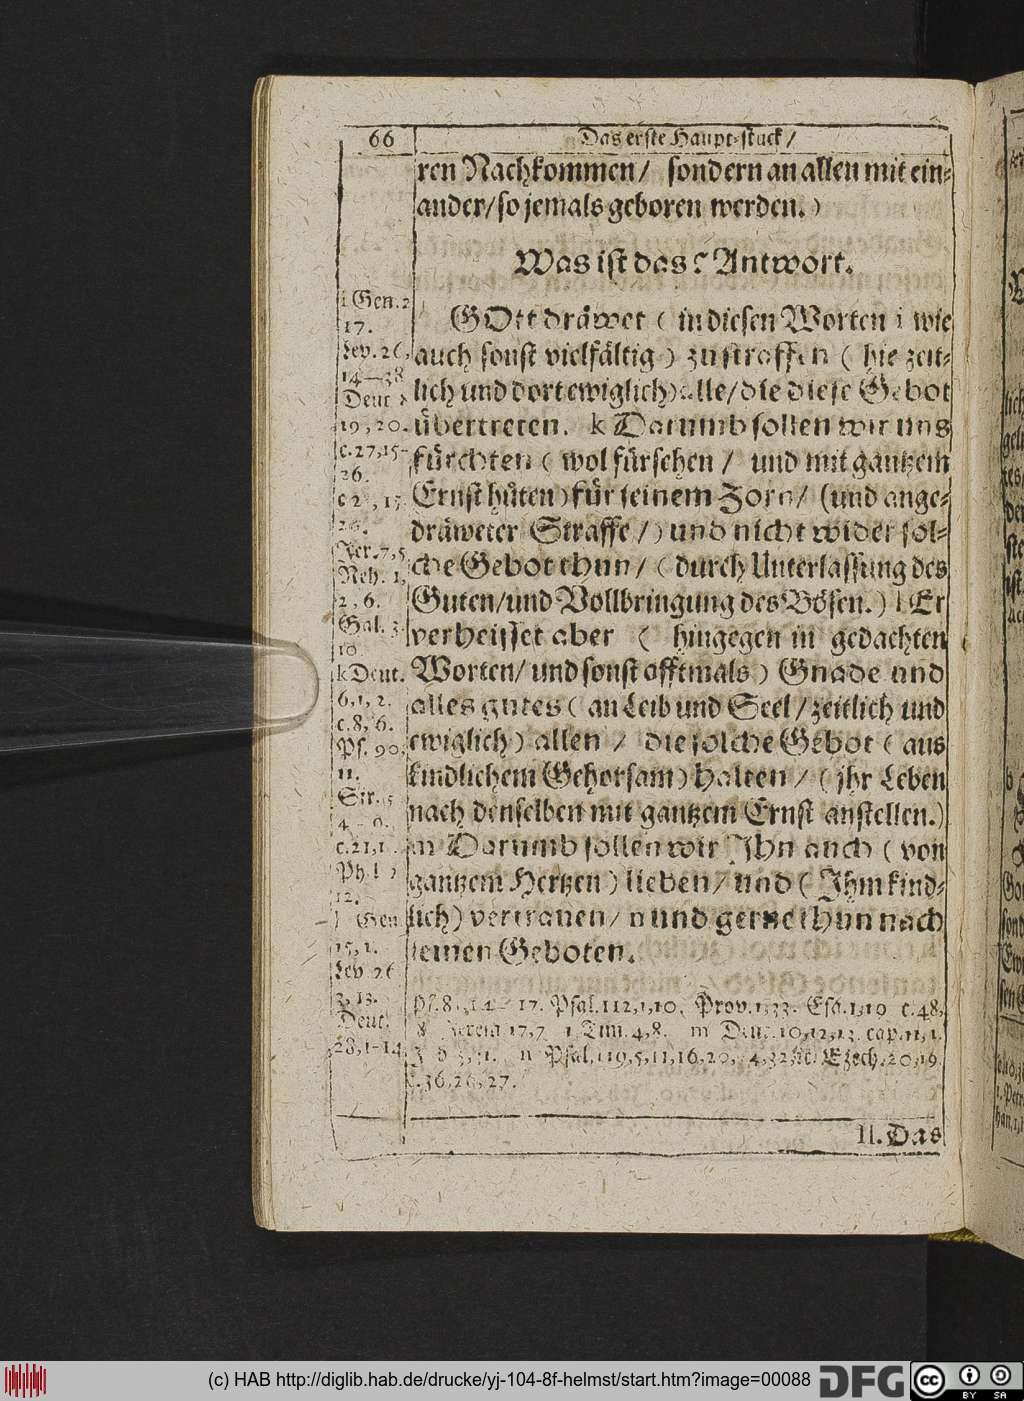 66
Das erste Haupt-stuck/
ren Nachkommen/ sondern an allen mit ein-
ander/ so jemals geboren werden.)
Was ist das? Antwort.
GOtt dräwet ( in diesen Worten i wie
auch sonst vielfältig ) zu straffen ( hie zeit-
lich und dort ewiglich) alle/ die diese Gebot
übertreten. k Darumb sollen wir uns
fürchten ( wol fürsehen / und mit gantzem
Ernst hüten) für seinem Zorn/ (und ange-
dräweter Straffe/) und nicht wider sol-
che Gebot thun/ ( durch Unterlassung des
Guten/ und Vollbringung des Bösen.) l Er
verheisset aber ( hingegen in gedachten
Worten/ und sonst offtmals ) Gnade und
alles gutes ( an Leib und Seel/ zeitlich und
ewiglich ) allen / die solche Gebot ( aus
kindlichem Gehorsam) halten/ ( jhr Leben
nach denselben mit gantzem Ernst anstellen.)
m Darumb sollen wir Jhn auch ( von
gantzem Hertzen ) lieben/ und ( Jhm kind-
lich) vertrauen/ n und gerne thun nach
seinen Geboten.
i Gen. 2
17.
Lev. 26,
14-38
Deut
19, 20.
c. 27, 15-
26.
Jer. 7, 5
Neh. 1,
2, 6.
Gal. 3.
10.
k Deut.
6, 1, 2.
c. 8, 6.
Ps. 90,
11.
Sir. 5
c. 21, 1
12.
l Gen
15, 1.
Lev 26
3, 13.
Deut.
28, 1-14
17. Psal. 112, 1, 10. Prov. 1, 33. Esa. 1, 19 c. 48,
Jerem 17, 7 1 Tim. 4, 8. m Deut. 10, 12, 13. cap. 11, 1.
n Psal. 119, 5, 11, 16, 20, Ezech. 20, 19.
c. 36, 26, 27.
II. Das
(c) HAB http://diglib.hab.de/drucke/yj-104-8f-helmst/start.htm?image=00088
DFG
cc
BY SA